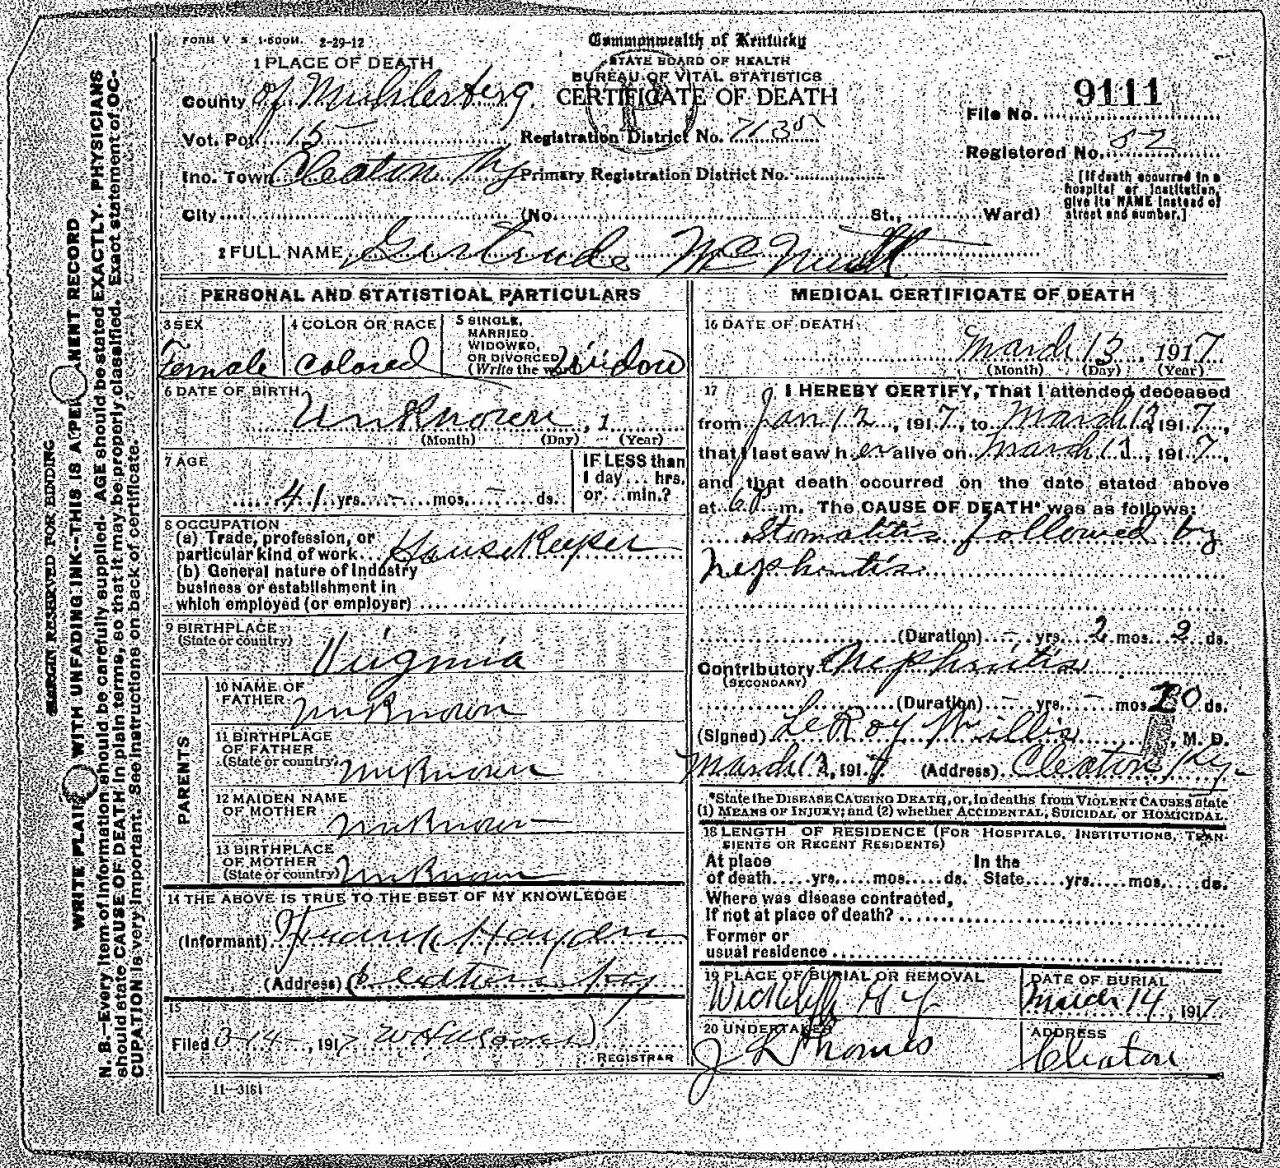 FORM V. S. 1-500M. 2-29-12
Commonwealth of Kentucky
STATE BOARD OF HEALTH
BUREAU OF VITAL STATISTICS
CERTIFICATE OF DEATH
1 PLACE OF DEATH
County of Muhlenberg
Vot. Pct. 15
Registration District No.
Inc. Town Cleaton Ky
Primary Registration District No.
City (No. St., Ward)
File No. 9111
Registered No. 82
[If death occurred in a
hospital or institution,
give its NAME instead of
street and number.]
2 FULL NAME Gertrude
PERSONAL AND STATISTICAL PARTICULARS
3 SEX
Female
4 COLOR OR RACE
Colored
5 SINGLE,
MARRIED,
WIDOWED,
OR DIVORCED
(Write the word)
Widow
6 DATE OF BIRTH
Unknown, 1
(Month) (Day) (Year)
7 AGE
41 yrs. - mos. - ds.
IF LESS than
1 day ... hrs.
or ... min.?
8 OCCUPATION
(a) Trade, profession, or
particular kind of work House Keeper
(b) General nature of Industry
business or establishment in
which employed (or employer)
9 BIRTHPLACE
(State or country)
Virginia
PARENTS
10 NAME OF
FATHER Unknown
11 BIRTHPLACE
OF FATHER
(State or country) Unknown
12 MAIDEN NAME
OF MOTHER Unknown
13 BIRTHPLACE
OF MOTHER
(State or country) Unknown
14 THE ABOVE IS TRUE TO THE BEST OF MY KNOWLEDGE
(Informant) Frank Hayden
(Address) Cleaton Ky
15
Filed 3-14-, 1917
REGISTRAR
11—3181
MEDICAL CERTIFICATE OF DEATH
16 DATE OF DEATH
March 13, 1917
(Month) (Day) (Year)
17 I HEREBY CERTIFY, That I attended deceased
from Jan 12, 1917, to March 12, 1917,
that I last saw her alive on March, 1917,
and that death occurred on the date stated above
at 6 P m. The CAUSE OF DEATH* was as follows:
Stomatitis followed by
Nephritis
(Duration) - yrs. 2 mos. 2 ds.
Contributory Nephritis
(SECONDARY)
(Duration) - yrs. - mos. ds.
(Signed) LeRoy Willis, M. D.
March, 1917 (Address) Cleaton Ky.
*State the DISEASE CAUSING DEATH, or, in deaths from VIOLENT CAUSES state
(1) MEANS OF INJURY; and (2) whether ACCIDENTAL, SUICIDAL or HOMICIDAL.
18 LENGTH OF RESIDENCE (FOR HOSPITALS, INSTITUTIONS, TRAN-
SIENTS OR RECENT RESIDENTS)
At place In the
of death yrs. mos. ds. State yrs. mos. ds.
Where was disease contracted,
If not at place of death?
Former or
usual residence
19 PLACE OF BURIAL OR REMOVAL
Wickliffe Ky
DATE OF BURIAL
March 14, 1917
20 UNDERTAKER
J K Thomas
ADDRESS
Cleaton
MARGIN RESERVED FOR BINDING
WRITE PLAINLY WITH UNFADING INK—THIS IS A PERMANENT RECORD
N. B.—Every item of information should be carefully supplied. AGE should be stated EXACTLY. PHYSICIANS
should state CAUSE OF DEATH in plain terms, so that it may be properly classified. Exact statement of OC-
CUPATION is very important. See instructions on back of certificate.